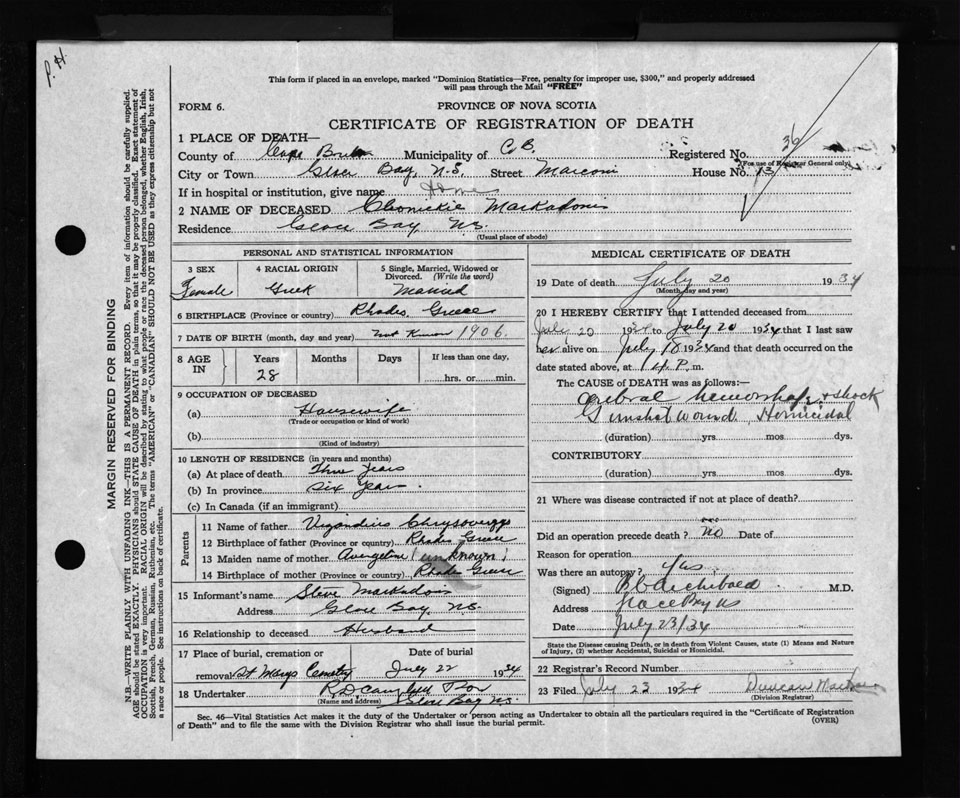 P. H.
This form if placed in an envelope, marked "Dominion Statistics—Free, penalty for improper use, $300," and properly addressed
will pass through the Mail "FREE"
FORM 6.
PROVINCE OF NOVA SCOTIA
CERTIFICATE OF REGISTRATION OF DEATH
1 PLACE OF DEATH—
County of Cape Breton Municipality of C.B. Registered No. 36
(For use of Registrar General only)
City or Town Glace Bay, N.S. Street Marconi House No.
If in hospital or institution, give name Home
2 NAME OF DECEASED
Residence Glace Bay N.S.
(Usual place of abode)
PERSONAL AND STATISTICAL INFORMATION
3 SEX
Female
4 RACIAL ORIGIN
Greek
5 Single, Married, Widowed or
Divorced. (Write the word)
Married
6 BIRTHPLACE (Province or country) Rhodes, Greece
7 DATE OF BIRTH (month, day and year) Not Known 1906.
8 AGE
IN
Years
28
Months
Days
If less than one day,
hrs. or min.
9 OCCUPATION OF DECEASED
(a) Housewife
(Trade or occupation or kind of work)
(b)
(Kind of industry)
10 LENGTH OF RESIDENCE (in years and months)
(a) At place of death Three Years
(b) In province Six Years.
(c) In Canada (if an immigrant)
Parents
11 Name of father
12 Birthplace of father (Province or country) Rhodes Greece
13 Maiden name of mother (unknown)
14 Birthplace of mother (Province or country) Rhodes Greece
15 Informant's name Steve
Address Glace Bay, N.S.
16 Relationship to deceased Husband
17 Place of burial, cremation or Date of burial
removal St Marys Cemetry July 22 1934
18 Undertaker R.D. Campbell
(Name and address) Glace Bay N.S.
MEDICAL CERTIFICATE OF DEATH
19 Date of death July 20 1934
(Month, day and year)
20 I HEREBY CERTIFY that I attended deceased from
July 20 1934 to July 20 1934 that I last saw
her alive on July 18 1934 and that death occurred on the
date stated above, at P. m.
The CAUSE OF DEATH was as follows:—
Cerebral hemorrhage & shock
Gunshot wound Homicidal
(duration) yrs. mos. dys.
CONTRIBUTORY
(duration) yrs. mos. dys.
21 Where was disease contracted if not at place of death?
Did an operation precede death? No Date of
Reason for operation
Was there an autopsy? Yes
(Signed) Archibald M.D.
Address Glace Bay NS
Date July 23/34
State the Disease causing Death, or in death from Violent Causes, state (1) Means and Nature
of Injury, (2) whether Accidental, Suicidal or Homicidal.
22 Registrar's Record Number
23 Filed July 23 1934 Duncan
(Division Registrar)
Sec. 46—Vital Statistics Act makes it the duty of the Undertaker or person acting as Undertaker to obtain all the particulars required in the "Certificate of Registration
of Death" and to file the same with the Division Registrar who shall issue the burial permit.
(OVER)
MARGIN RESERVED FOR BINDING
N.B.—WRITE PLAINLY WITH UNFADING INK—THIS IS A PERMANENT RECORD. Every item of information should be carefully supplied.
AGE should be stated EXACTLY. PHYSICIANS should STATE CAUSE OF DEATH in plain terms, so that it may be properly classified. Exact statement of
OCCUPATION is very important. RACIAL ORIGIN will be described by stating to what people or race the deceased person belonged, whether English, Irish,
Scottish, French, German, Russian, Ruthenian, etc. The terms "AMERICAN" or "CANADIAN" SHOULD NOT BE USED as they express citizenship but not
a race or people. See instructions on back of certificate.